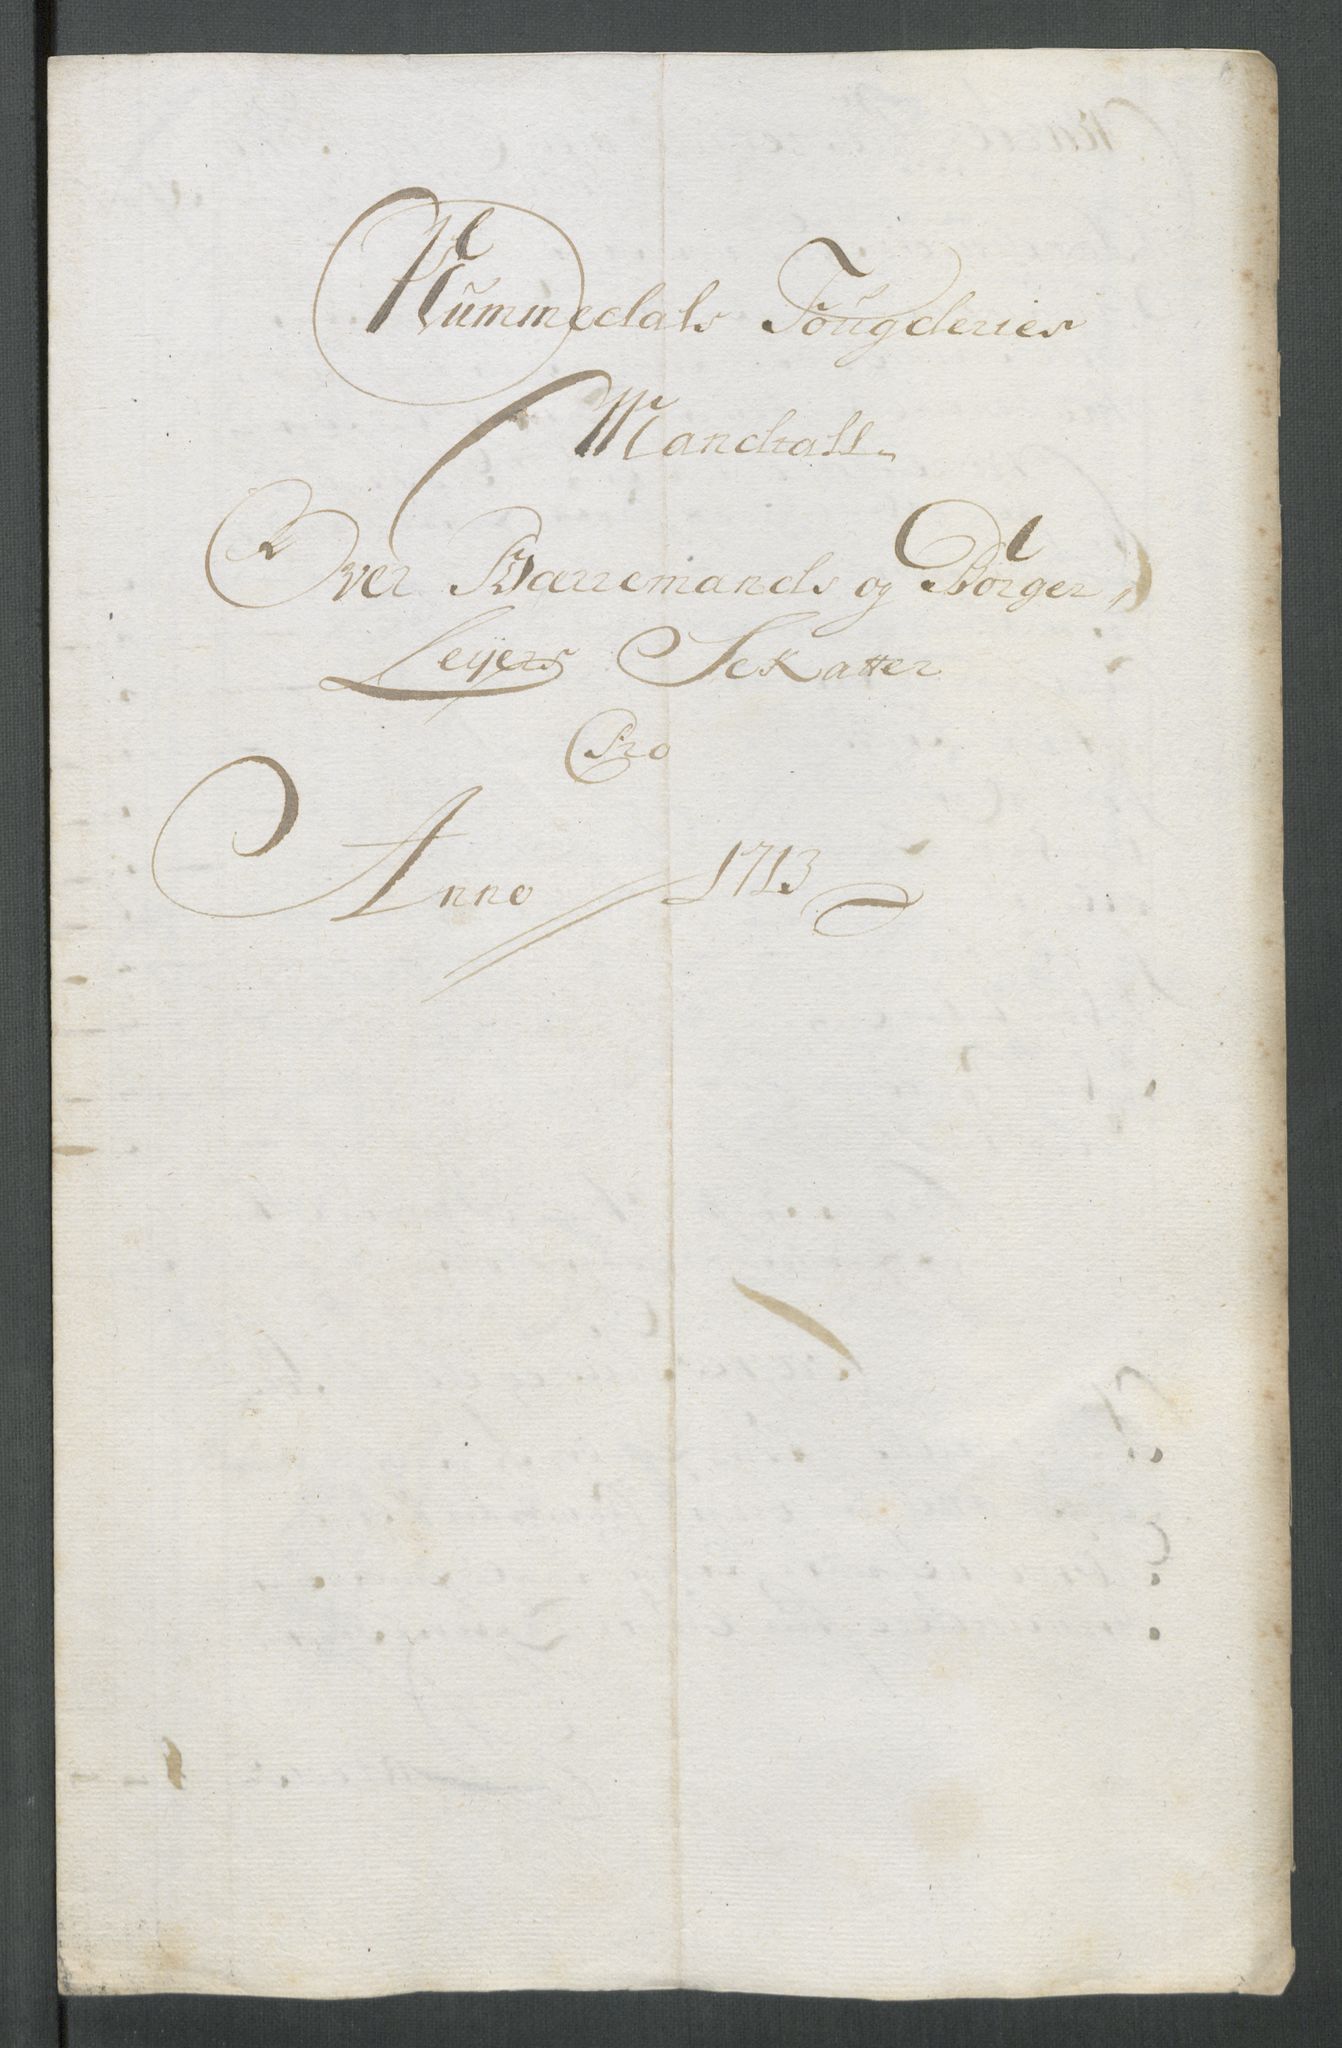 Nummedals Fougderies
Mandtall
Over Barremands og Borger
Leyers Schatter
Pro
Anno 1713